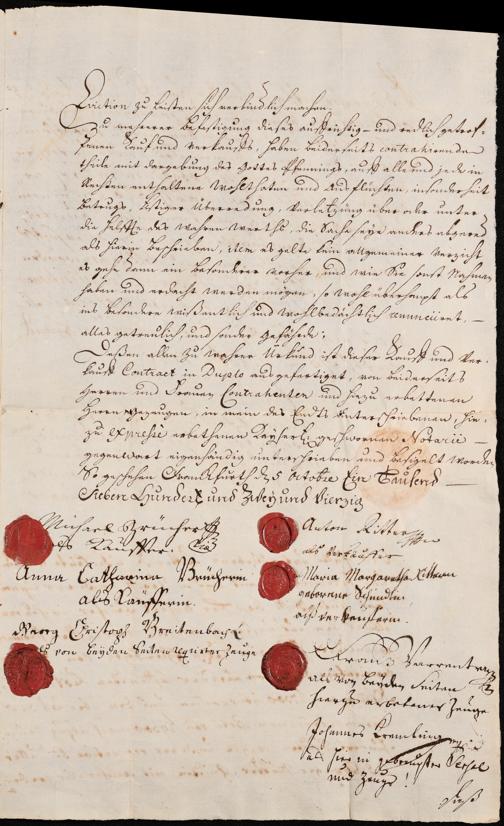 Eviction zu leisten sich verbindlich machen.
Zu mehrerer befestigung dieses aufrichtig- und redlich getrof-
fenen Kauf und Verkauffs, haben beiderseits contrahirende
theile mit dergebung des Gottes Pfennings, auff alle und jede in
Rechten enthaltene Wohlthaten und Ausflüchten, insonderheit
betrugs, listiger Überredung, Verletzung über oder unter
die helffte des wahren werths, die Sache seye anders abgeredt
als hierin beschrieben, item es gelte kein allgemeiner Verzicht
es gehe dann ein besonderer vorher, und wie Sie sonst Nahmen
haben und erdacht werden mögen, so wohl überhaupt als
ins besondere wissentlich und wohlbedächtlich renunciiret,
alles getreulich und sonder gefährde.
Dessen allen zu wahrer Urkund ist dieser Kauff und Ver-
kauff Contract in Duplo ausgefertiget, von beiderseits
Herren und Frauen Contrahenten und hiezu erbettenen
Herrn Gezeugen, in mein des Endts Unterschriebenen, hie-
zu expresse erbethenen Kayserl. geschwornen Notarii
gegenwart eigenhändig unterschrieben und besigelt worden
So geschehen Franckfurth d. 5 Octobris Ein Tausend
Sieben Hundert und Zwey und Vierzig
Michael Brücher
als Käuffer.
Anna Catharina Brücherin
als Käufferin.
Georg Christoph Breitenbach
von beyden seiten requirirter Zeuge
Anton Ritter
als Verkäuffer
Maria Margaretha Rittern
geborene
als verkäuferin.
Frantz Varrentrapp
als von beyden seiten
hierzu erbetener Zeuge
Johannes
als hier in
und Zeuge!